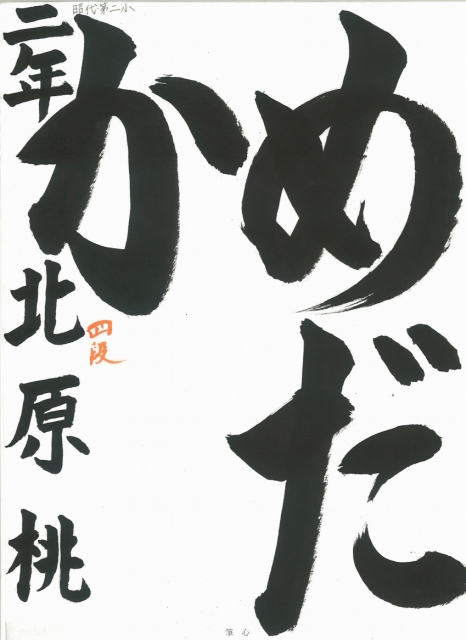 めだ
か
二年 北原 桃
昭代第二小
四段
筆心